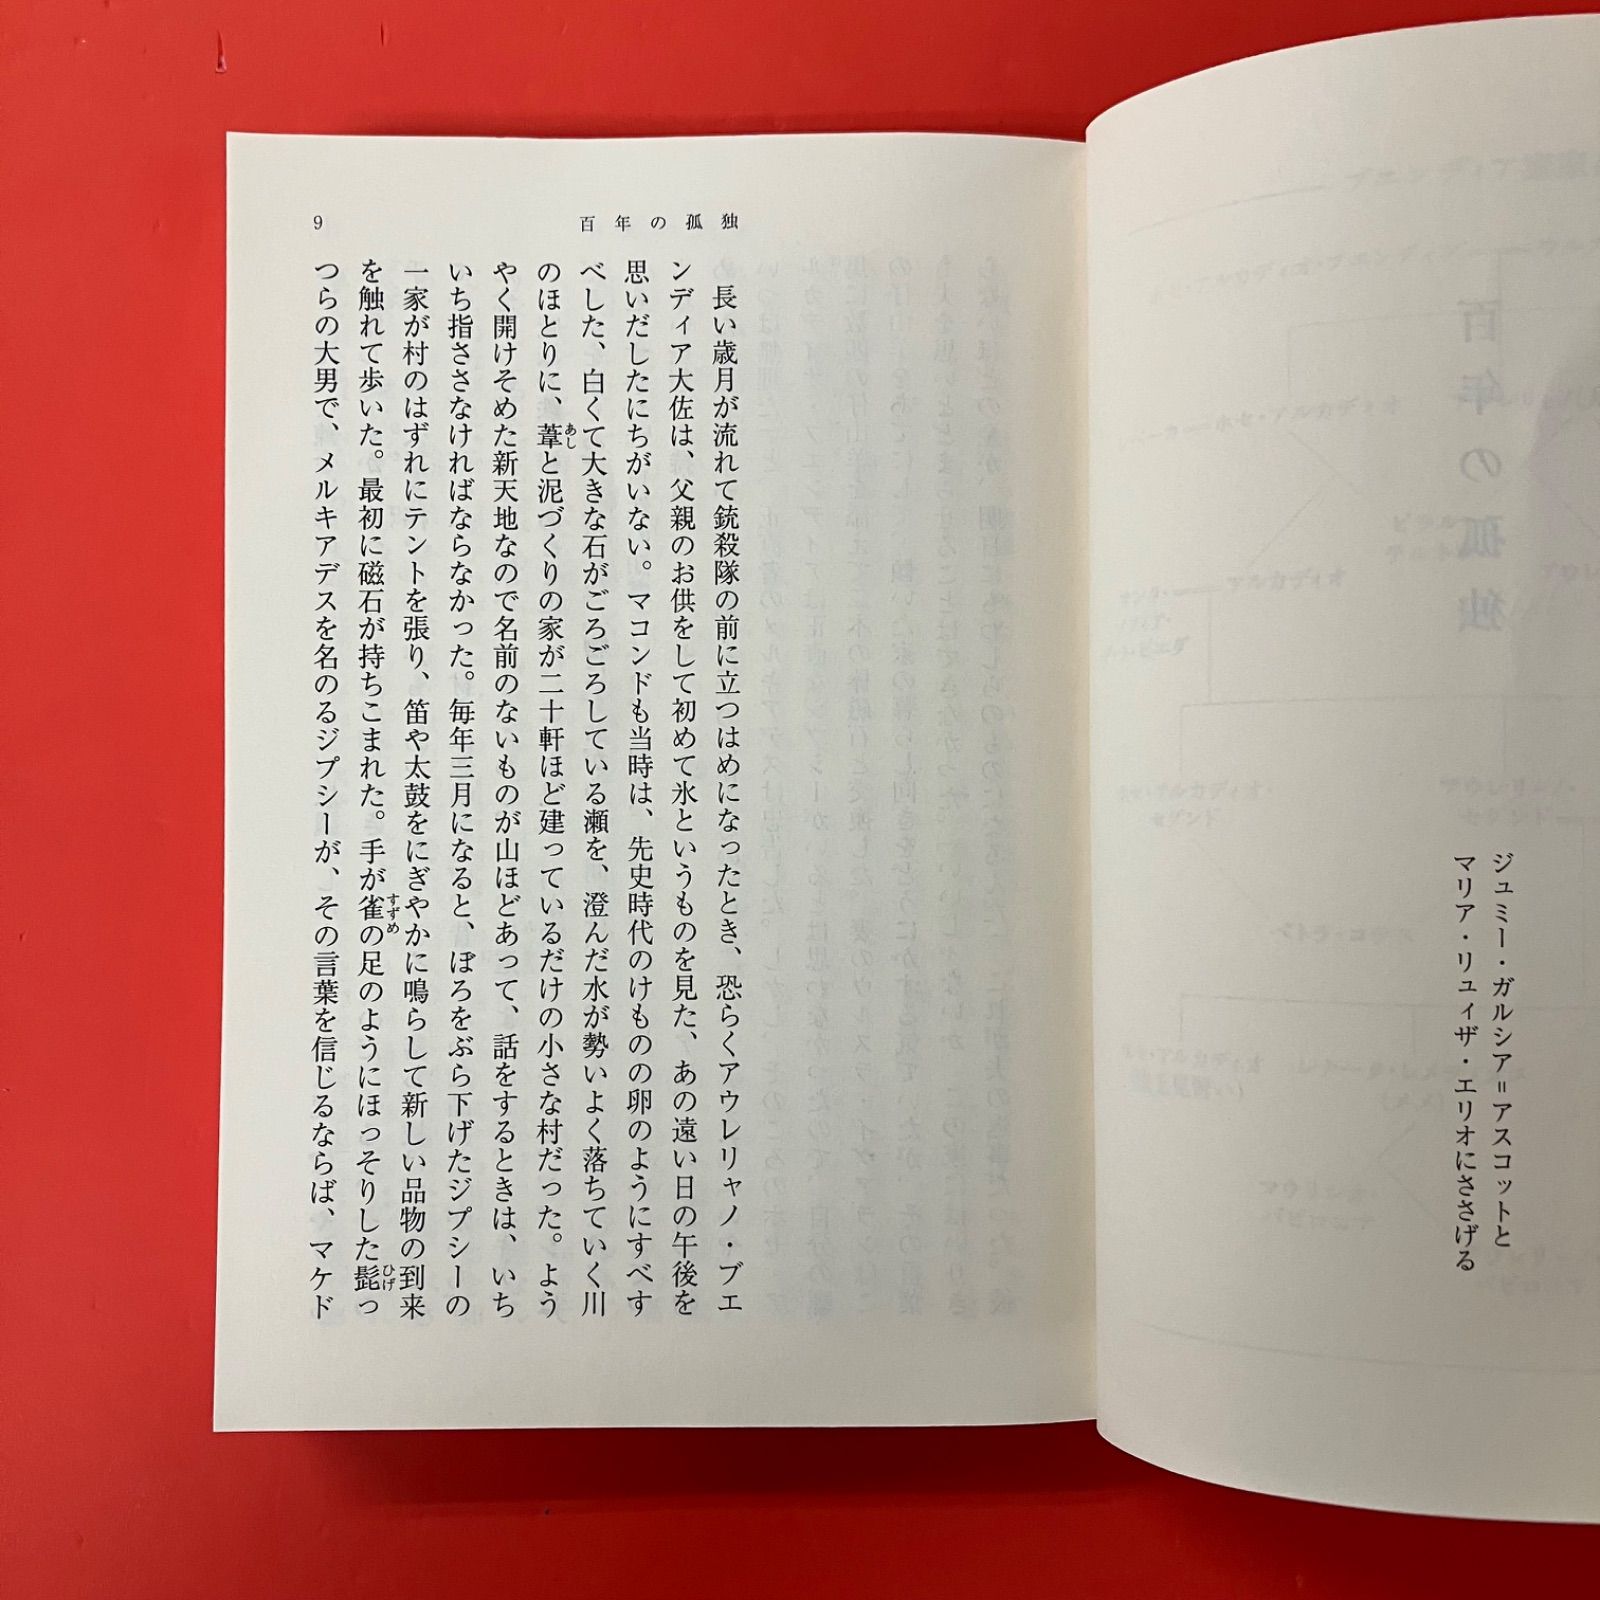 ジュミー・ガルシア＝アスコットと
マリア・リュイザ・エリオにささげる
百年の孤独
9
長い歳月が流れて銃殺隊の前に立つはめになったとき、恐らくアウレリャノ・ブエ
ンディア大佐は、父親のお供をして初めて氷というものを見た、あの遠い日の午後を
思いだしたにちがいない。マコンドも当時は、先史時代のけものの卵のようにすべす
べした、白くて大きな石がごろごろしている瀬を、澄んだ水が勢いよく落ちていく川
のほとりに、葦と泥づくりの家が二十軒ほど建っているだけの小さな村だった。よう
やく開けそめた新天地なので名前のないものが山ほどあって、話をするときは、いち
いち指ささなければならなかった。毎年三月になると、ぼろをぶら下げたジプシーの
一家が村のはずれにテントを張り、笛や太鼓をにぎやかに鳴らして新しい品物の到来
を触れて歩いた。最初に磁石が持ちこまれた。手が雀の足のようにほっそりした髭っ
つらの大男で、メルキアデスを名のるジプシーが、その言葉を信じるならば、マケド